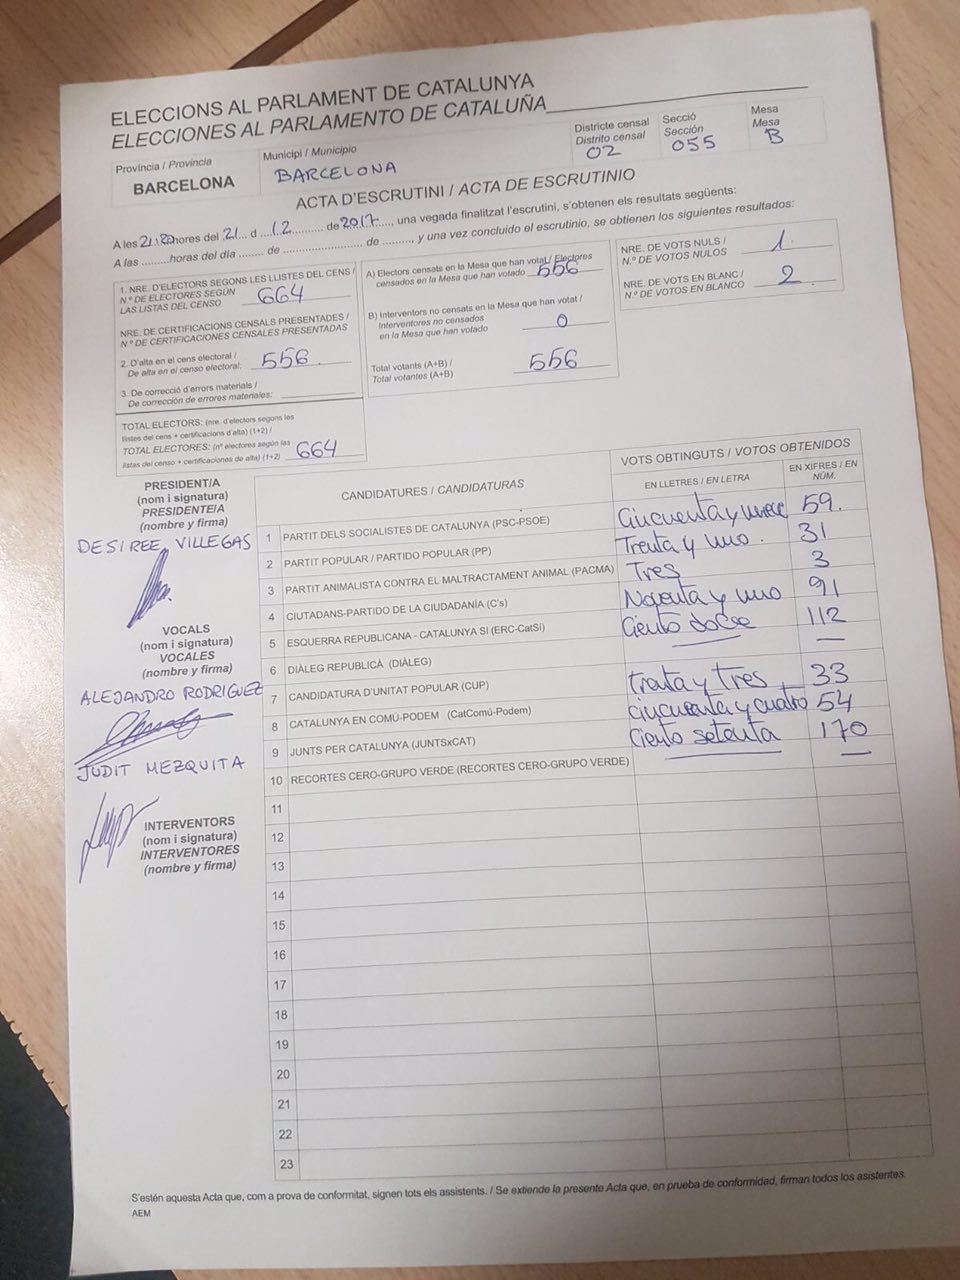 ELECCIONS AL PARLAMENT DE CATALUNYA
ELECCIONES AL PARLAMENTO DE CATALUÑA
Província / Provincia
BARCELONA
Municipi / Municipio
BARCELONA
Districte censal
Distrito censal
02
Secció
Sección
055
Mesa
Mesa
B
ACTA D'ESCRUTINI / ACTA DE ESCRUTINIO
A les hores del 21 d 12 de 2017, una vegada finalitzat l'escrutini, s'obtenen els resultats següents:
A las .........horas del día ....... de ........................ de ........, y una vez concluido el escrutinio, se obtienen los siguientes resultados:
1. NRE. D'ELECTORS SEGONS LES LLISTES DEL CENS /
N.º DE ELECTORES SEGÚN
LAS LISTAS DEL CENSO 664
NRE. DE CERTIFICACIONS CENSALS PRESENTADES /
N.º DE CERTIFICACIONES CENSALES PRESENTADAS
2. D'alta en el cens electoral /
De alta en el censo electoral: 556
3. De correcció d'errors materials /
De corrección de errores materiales:
TOTAL ELECTORS: (nre. d'electors segons les
llistes del cens + certificacions d'alta) (1+2) /
TOTAL ELECTORES: (nº electores según las
listas del censo + certificaciones de alta) (1+2) 664
A) Electors censats en la Mesa que han votat / Electores
censados en la Mesa que han votado 556
B) Interventors no censats en la Mesa que han votat /
Interventores no censados
en la Mesa que han votado 0
Total votants (A+B) /
Total votantes (A+B) 556
NRE. DE VOTS NULS /
N.º DE VOTOS NULOS 1
NRE. DE VOTS EN BLANC /
N.º DE VOTOS EN BLANCO 2
PRESIDENT/A
(nom i signatura)
PRESIDENTE/A
(nombre y firma)
DESIREE VILLEGAS
VOCALS
(nom i signatura)
VOCALES
(nombre y firma)
ALEJANDRO RODRIGUEZ
JUDIT MEZQUITA
INTERVENTORS
(nom i signatura)
INTERVENTORES
(nombre y firma)
CANDIDATURES / CANDIDATURAS
VOTS OBTINGUTS / VOTOS OBTENIDOS
EN LLETRES / EN LETRA
EN XIFRES / EN NÚM.
1 PARTIT DELS SOCIALISTES DE CATALUNYA (PSC-PSOE) Cincuenta y nueve 59.
2 PARTIT POPULAR / PARTIDO POPULAR (PP) Treinta y uno. 31
3 PARTIT ANIMALISTA CONTRA EL MALTRACTAMENT ANIMAL (PACMA) Tres 3
4 CIUTADANS-PARTIDO DE LA CIUDADANÍA (C's) Noventa y uno 91
5 ESQUERRA REPUBLICANA - CATALUNYA SI (ERC-CatSí) Ciento doce 112
6 DIÀLEG REPUBLICÀ (DIÀLEG) — —
7 CANDIDATURA D'UNITAT POPULAR (CUP) treita y tres 33
8 CATALUNYA EN COMÚ-PODEM (CatComú-Podem) cincuenta y cuatro 54
9 JUNTS PER CATALUNYA (JUNTSxCAT) Ciento setenta 170
10 RECORTES CERO-GRUPO VERDE (RECORTES CERO-GRUPO VERDE) — —
11
12
13
14
15
16
17
18
19
20
21
22
23
S'estén aquesta Acta que, com a prova de conformitat, signen tots els assistents. / Se extiende la presente Acta que, en prueba de conformidad, firman todos los asistentes.
AEM